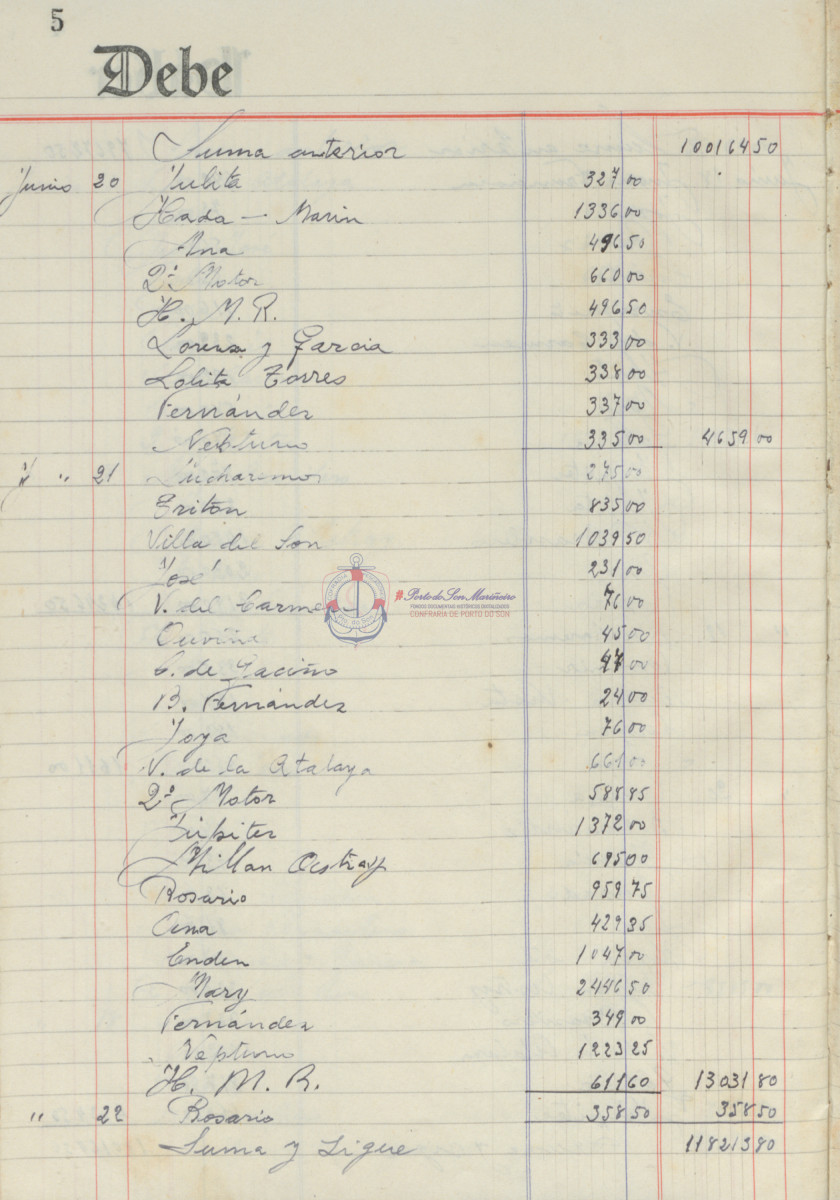 5
Debe
Suma anterior 100164 50
Junio 20 Julita 327 00
Hada - Marin 1336 00
Ana 496 50
2º Motor 660 00
H. M. R. 496 50
Lorenzo y Garcia 333 00
Lolita Torres 338 00
Fernández 337 00
Neptuno 335 00 4659 00
" 21 Lucharemos 275 00
Triton 835 00
Villa del Son 1039 50
José 231 00
V. del Carmen 76 00
Ouviña 45 00
C. de Gaciño 47 00
B. Fernández 24 00
Joya 76 00
V. de la Atalaya 661 00
2º Motor 588 85
Júpiter 1372 00
Millan Astray 695 00
Rosario 959 75
Ana 429 35
Enden 1047 00
Mary 2446 50
Fernández 349 00
Neptuno 1223 25
H. M. R. 611 60 13031 80
" 22 Rosario 358 50 358 50
Suma y Sigue 118213 80
#PortodoSonMariñeiro
FONDOS DOCUMENTAIS HISTÓRICOS DIXITALIZADOS
CONFRARÍA DE PORTO DO SON